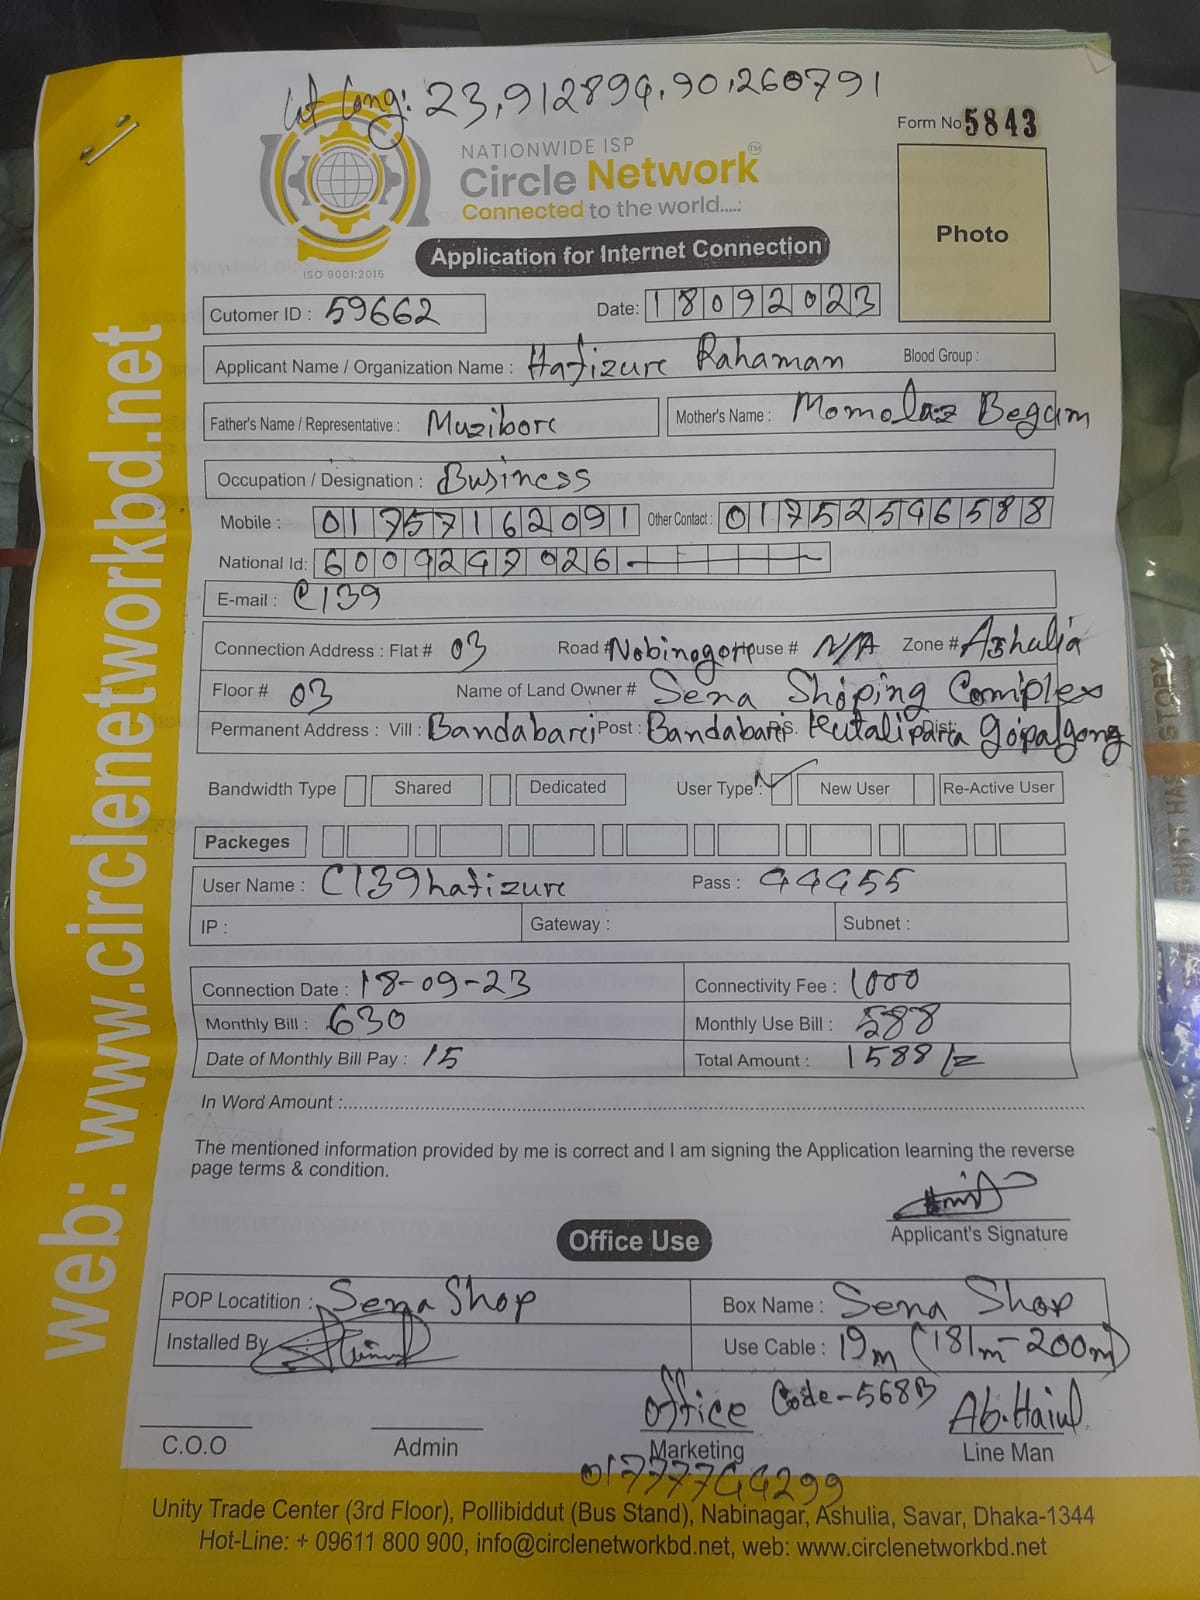 Lat Long: 23.912894, 90.260791
Form No 5843
NATIONWIDE ISP
Circle Network TM
Connected to the world....:
ISO 9001:2015
Application for Internet Connection
Photo
Cutomer ID : 59662 Date: 18092023
Applicant Name / Organization Name : Hafizure Rahaman Blood Group :
Father's Name / Representative : Muzibore Mother's Name : Momolaz Begum
Occupation / Designation : Business
Mobile : 01757162091 Other Contact : 01752546588
National Id: 6009247026
E-mail : C139
Connection Address : Flat # 03 Road # Nobinogor House # N/A Zone # Ashulia
Floor # 03 Name of Land Owner # Sena Shoping Complex
Permanent Address : Vill : Bandabari Post : Bandabari P.S. Kutalipara Dist: Gopalgong
Bandwidth Type Shared Dedicated User Type : New User Re-Active User
Packeges
User Name : C139hafizure Pass : 44455
IP : Gateway : Subnet :
Connection Date : 18-09-23 Connectivity Fee : 1000
Monthly Bill : 630 Monthly Use Bill : 588
Date of Monthly Bill Pay : 15 Total Amount : 1588/=
In Word Amount :
The mentioned information provided by me is correct and I am signing the Application learning the reverse
page terms & condition.
Applicant's Signature
Office Use
POP Locatition : Sena Shop Box Name : Sena Shop
Installed By Use Cable : 19m (181m-200m)
office Code-568B Ab.Haiul
C.O.O Admin Marketing Line Man
01777744299
Unity Trade Center (3rd Floor), Pollibiddut (Bus Stand), Nabinagar, Ashulia, Savar, Dhaka-1344
Hot-Line: + 09611 800 900, info@circlenetworkbd.net, web: www.circlenetworkbd.net
web: www.circlenetworkbd.net